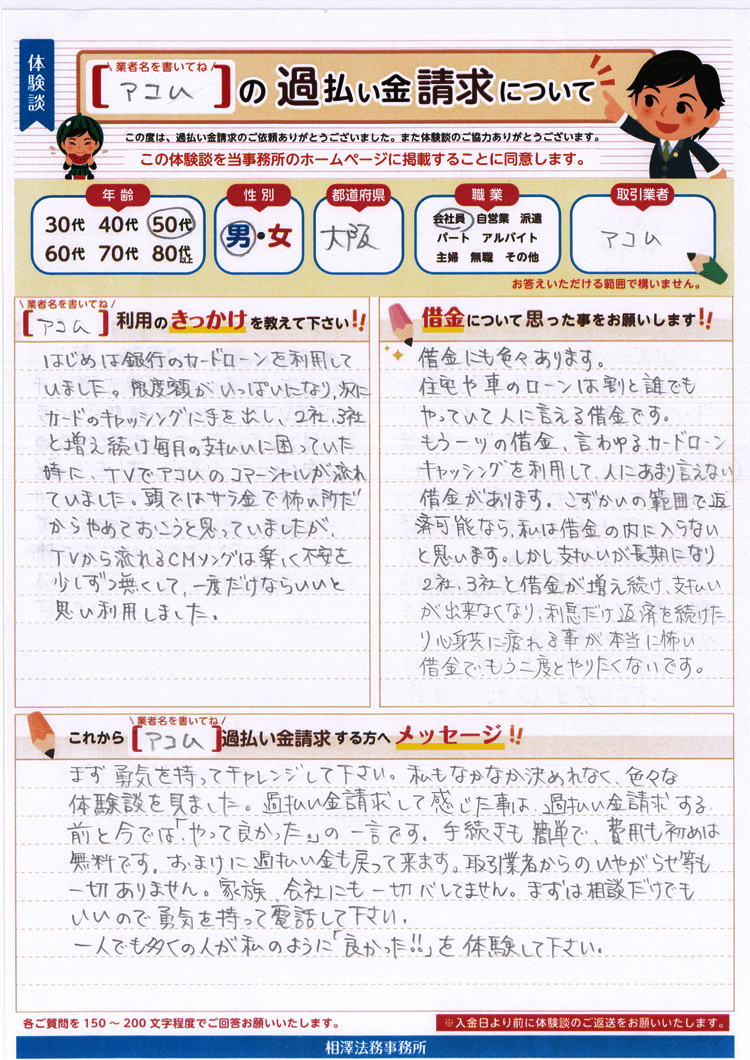 体験談
\ 業者名を書いてね /
[アコム]の過払い金請求について
この度は、過払い金請求のご依頼ありがとうございました。また体験談のご協力ありがとうございます。
この体験談を当事務所のホームページに掲載することに同意します。
年齢
30代 40代 50代
60代 70代 80代以上
性別
男・女
都道府県
大阪
職業
会社員 自営業 派遣
パート アルバイト
主婦 無職 その他
取引業者
アコム
お答えいただける範囲で構いません。
\ 業者名を書いてね /
[アコム]利用のきっかけを教えて下さい!!
はじめは銀行のカードローンを利用して
いました。限度額がいっぱいになり,次に
カードのキャッシングに手を出し、2社,3社
と増え続け毎月の支払いに困っていた
時に、TVでアコムのコマーシャルが流れ
ていました。頭ではサラ金で怖い所だ
からやめておこうと思っていましたが、
TVから流れるCMソングは楽しく不安を
少しずつ無くして,一度だけならいいと
思い利用しました。
借金について思った事をお願いします!!
借金にも色々あります。
住宅や車のローンは割と誰でも
やっていて人に言える借金です。
もう一ツの借金、言わゆるカードローン
キャッシングを利用して、人にあまり言えない
借金があります。こずかいの範囲で返
済可能なら,私は借金の内に入らない
と思います。しかし支払いが長期になり
2社,3社と借金が増え続け、支払い
が出来なくなり,利息だけ返済を続けた
り心身共に疲れる事が本当に怖い
借金で、もう二度とやりたくないです。
\ 業者名を書いてね /
これから[アコム]過払い金請求する方へメッセージ!!
まず勇気を持ってチャレンジして下さい。私もなかなか決めれなく、色々な
体験談を見ました。過払い金請求して感じた事は、過払い金請求する
前と今では「やって良かった。」の一言です。手続きも簡単で、費用も初めは
無料です。おまけに過払い金も戻って来ます。取引業者からのいやがらせ等も
一切ありません。家族、会社にも一切バレてません。まずは相談だけでも
いいので勇気を持って電話して下さい。
一人でも多くの人が私のように「良かった!!」を体験して下さい。
各ご質問を150〜200文字程度でご回答お願いいたします。
※入金日より前に体験談のご返送をお願いいたします。
相澤法務事務所